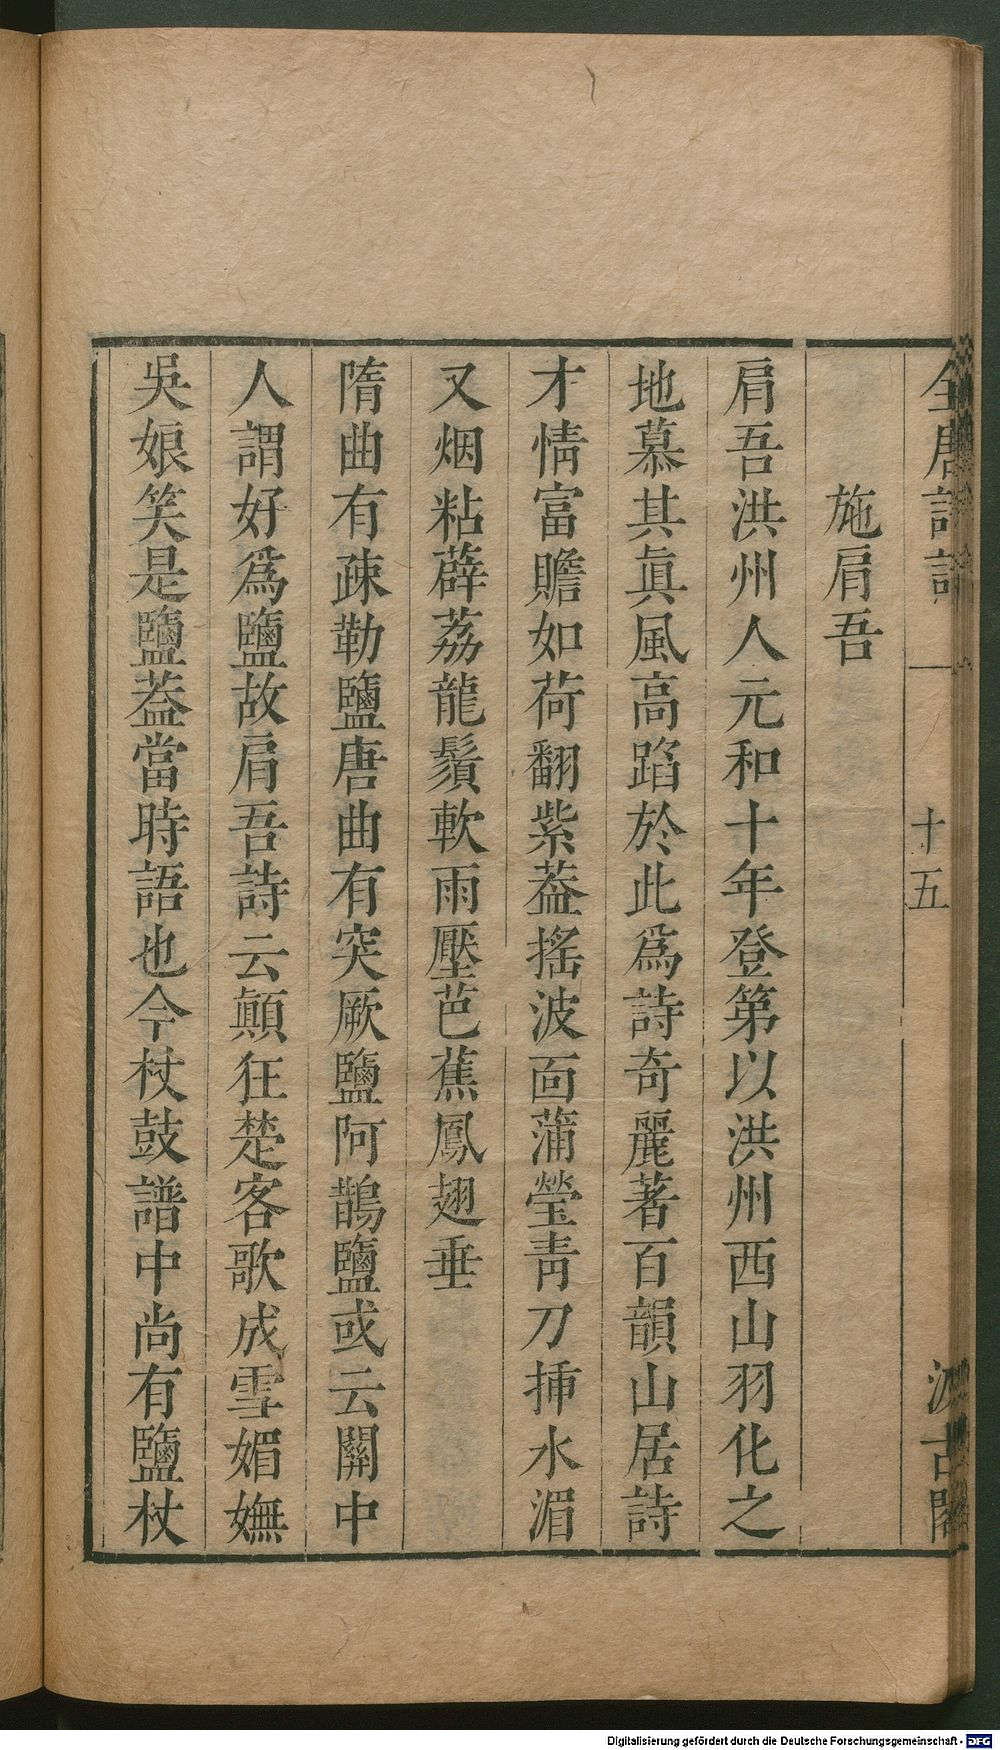 全唐詩話
一
十五
汲古閣
施肩吾
肩吾洪州人元和十年登第以洪州西山羽化之
地慕其眞風高蹈於此爲詩奇麗著百韻山居詩
才情富贍如荷翻紫葢搖波面蒲瑩靑刀揷水湄
又烟粘薜荔龍鬚軟雨壓芭蕉鳳翅垂
隋曲有疎勒鹽唐曲有突厥鹽阿鵲鹽或云關中
人謂好爲鹽故肩吾詩云顚狂楚客歌成雪媚嫵
吳娘笑是鹽葢當時語也今杖鼓譜中尚有鹽杖
Digitalisierung gefördert durch die Deutsche Forschungsgemeinschaft - DFG